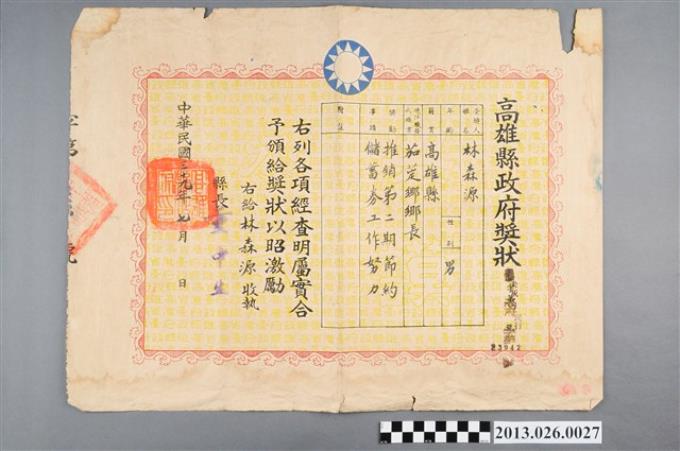 高雄縣政府獎狀
受領人姓名 林森源
年齡 性別 男
籍貫 高雄縣
茄萣鄉鄉長
獎勵事蹟 推銷第二期節約儲蓄券工作努力
附註
右列各項經查明屬實合
予頒給獎狀以昭激勵
右給林森源收執
縣長 董中生
中華民國三十九年七月 日
字第 號
23942
2013.026.0027